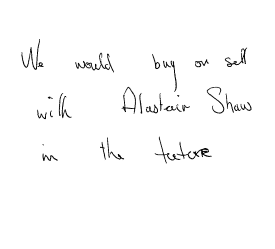 We would buy or sell
with Alastair Shaw
in the future